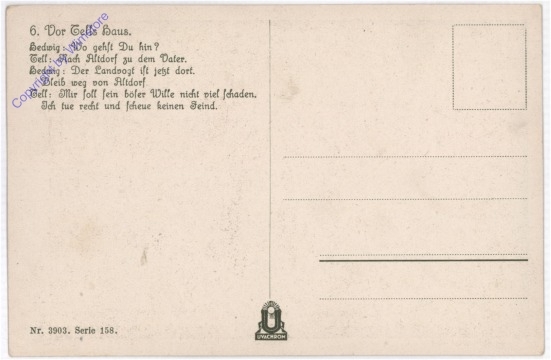 6. Vor Tells Haus.
Hedwig: Wo gehst Du hin?
Tell: Nach Altdorf zu dem Vater.
Hedwig: Der Landvogt ist jetzt dort.
Bleib weg von Altdorf.
Tell: Mir soll sein böser Wille nicht viel schaden,
Ich tue recht und scheue keinen Feind.
Copyright by Winstore
Nr. 3903. Serie 158.
U
UVACHROM